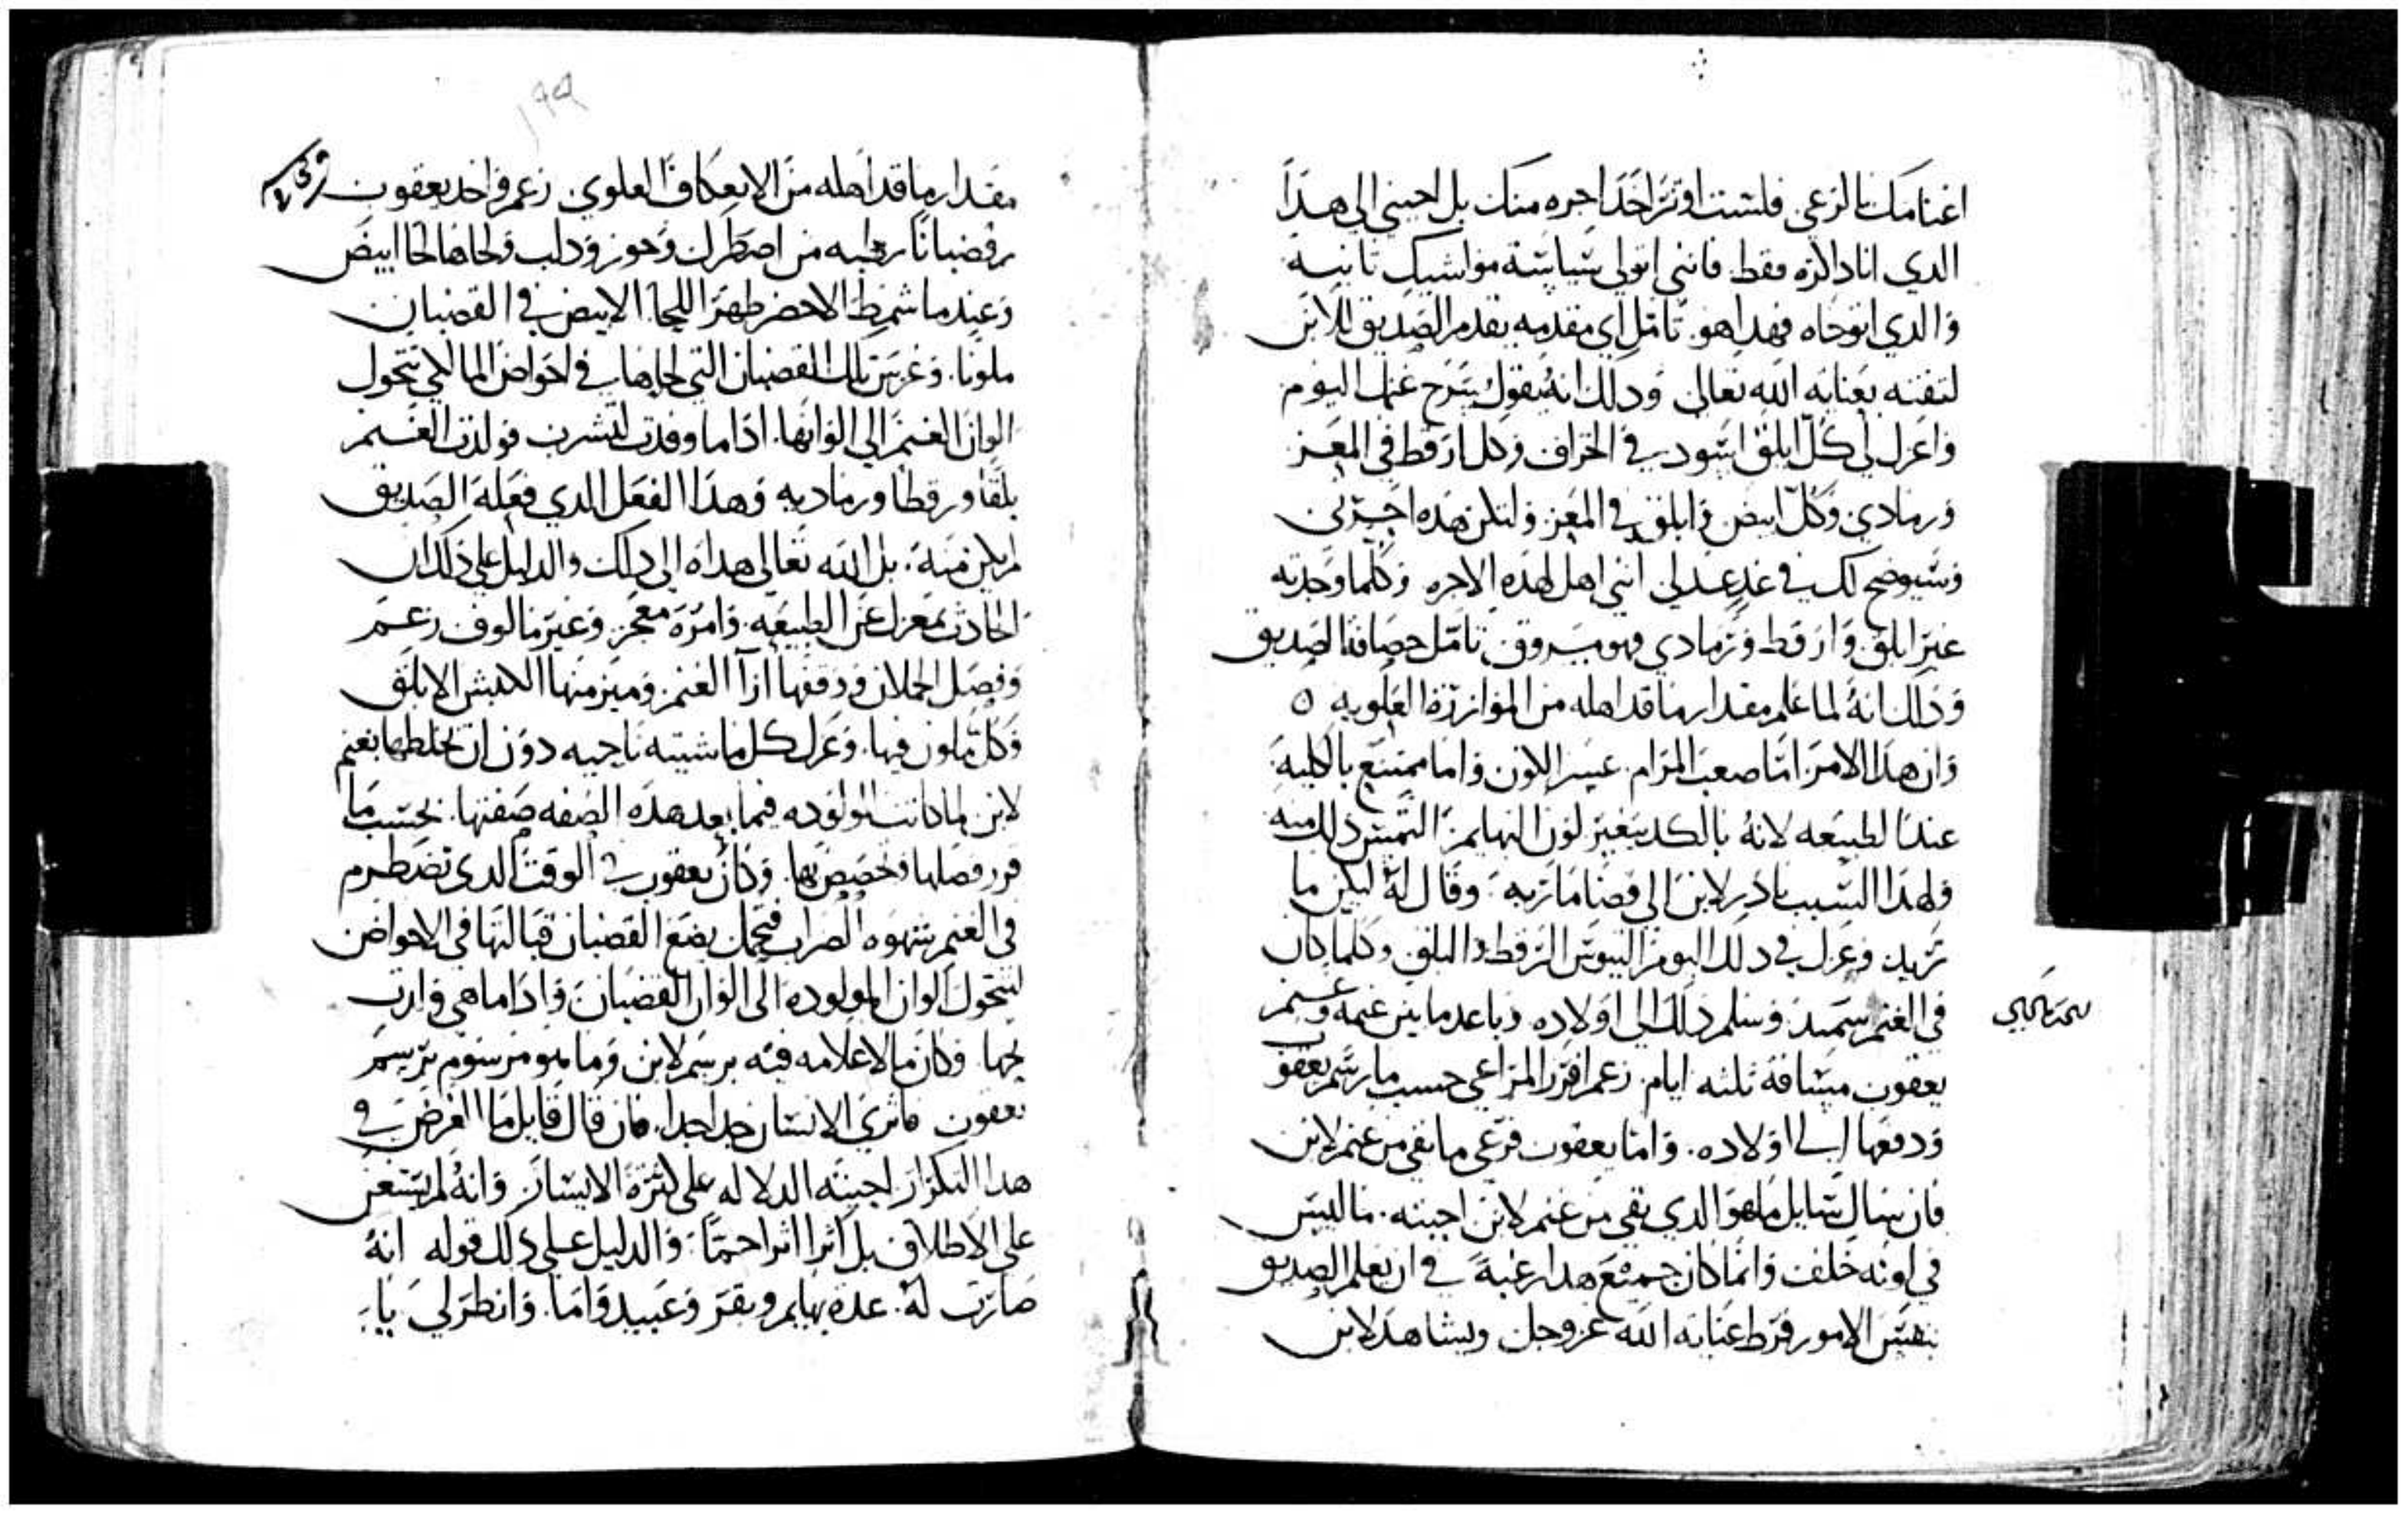 اغنامك بالرعي فلست اوثر اخذ اجره منك بل اجبني الي هدا
الدي انا داكره فقط فانني اتولي سياسة مواشيك ثانية
والدي اتوخاه فهدا هو تامل اي مقدمه يقدم الصديق للابن
لثقته بعناية الله تعالي ودلك انه يقول يسرح غنمك اليوم
واعزل لي كل ابلق اسود في الخراف وكل ارقط في المعز
ورمادي وكل ابيض وابلق في المعز ولتكن هده اجرتي
وسيوضح لك في غد عدلي انني اهل لهده الاجره وكلما وجدته
غير ابلق وارقط ورمادي فهو مسروق تامل حصافة الصديق
ودلك انه لما علم مقدار ما قد اهله من الموازرة العلويه ٥
وان هدا الامر اما صعب المرام عسر اللون واما ممتنع بالكلية
عند الطبيعه لانه بالكد يتغير لون البهايم التمس دلك منه
ولهدا السبب بادر لابن الي قضا ماربه وقال له ليكن ما
تريد وعزل في دلك اليوم التيوس الرقط والبلق وكلما كان
في الغنم سميد وسلم دلك الي اولاده وباعد ما بين غنمه وغنم
يعقوب مسافة ثلثه ايام زعم افرز المراعي حسب ما رسم يعقوب
ودفعها الي اولاده واما يعقوب فرعي ما بقي من غنم لابن
فان سال سايل ما هو الدي بقي من غنم لابن اجبته ما ليس
في لونه خلف وانما كان جميع هدا رغبة في ان يعلم الصديق
بنفس الامور فرط عناية الله عز وجل ويشاهد لابن
مقدار ما قد اهله من الانعكاف العلوي زعم واخد يعقوب
قضبانا رطبه من اصطرك وجوز ودلب ولحاها لحا ابيض
وعندما شمط الاخضر ظهر اللحا الابيض في القضبان
ملونا وغرس تلك القضبان التي لحاها في احواض الما لكي تتحول
الوان الغنم الي الوانها ادا ما وفدت لتشرب فولدت الغنم
بلقا ورقطا ورماديه وهدا الفعل الدي فعله الصديق
لم يكن منه بل الله تعالي هداه الي دلك والدليل علي دلك ان
الحادث بمعزل عن الطبيعه وامره معجز وغير مالوف زعم
وفصل الحملان ووقفها ازآ الغنم وميز منها الكبش الابلق
وكل ملون فيها وعزل كل ماشيته ناحيه دون ان يخلطها بغنم
لابن لما كانت المولوده فيما بعد هده الصفه صفتها بحسب ما
قرر فصلها وخصص بها وكان يعقوب في الوقت الدي تضطرم
في الغنم شهوه الضراب فتحمل يضع القضبان قبالتها في الاحواض
لتتحول الوان المولوده الي الوان القضبان وادا ما هي
بها وكان ما لا علامه فيه برسم لابن وما هو مرسوم برسم
يعقوب فاثري الانسان جدا جدا فان قال قايل ما الغرض في
هدا التكرار اجبته الدلاله علي كثرة الايسار وانه لم يستغن
علي الاطلاق بل اثرا اثرا حمًا والدليل علي دلك قوله انه
صارت له عدة بهايم وبقر وعبيد واما وانظر لي يا